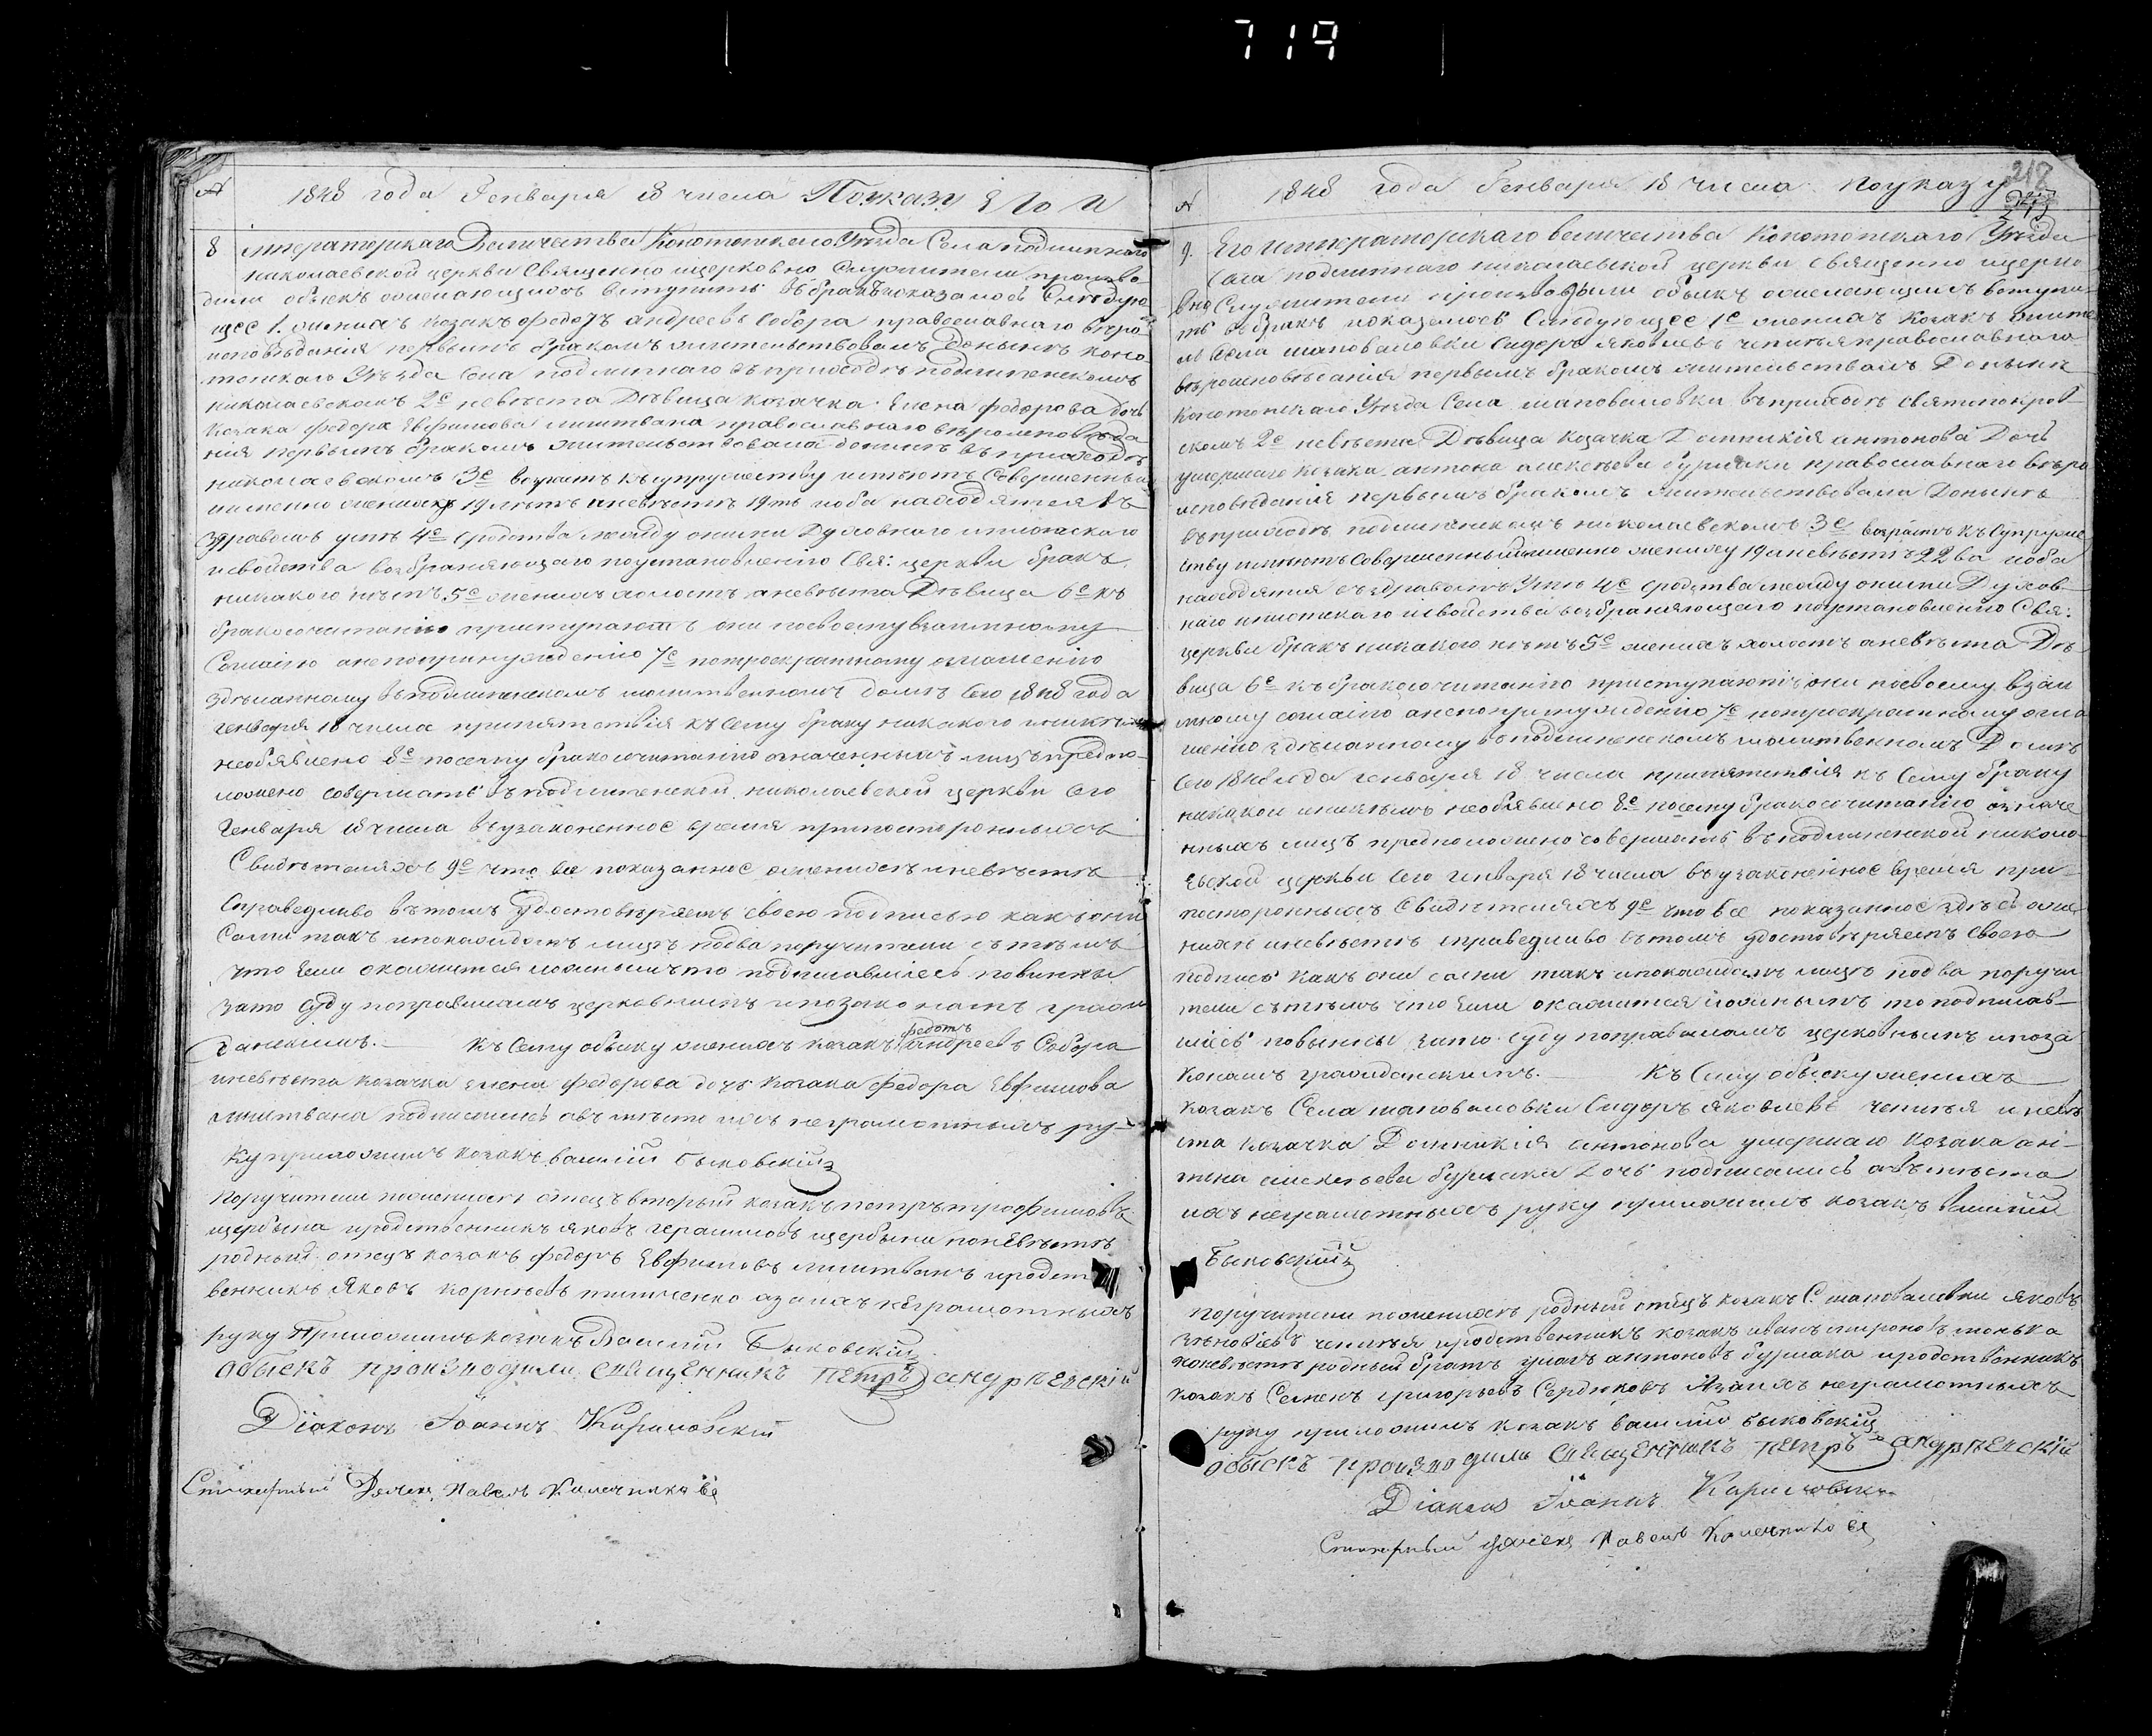 719
№ 1848 года Генваря 18 числа По указу Е Г О И
8 мператорскаго Величества Конотопскаго Уезда Села подлипнаго
николаевской церкви Священно ицерковно Служители произво
дили обыск ожелающихъ вступить въ бракъ иоказалось Следую
щее 1. женихъ козакъ федотъ андреевъ Собора православнаго веро
исповеданія первымъ бракомъ жительствовалъ доныне коно
топскаго Уезда Села подлипнаго въ приходе подлипенскомъ
николаевскомъ 2е невеста Девица козачка Елена федорова дочь
козака федора Евфимова литвана православнаго вероисповеда
нія первымъ бракомъ жительствовала доныне въ приходе
николаевскомъ 3е возрастъ къ супружеству имеютъ совершенный
именно женихъ 19 летъ аневеста 19ть иоба находятся въ
здравомъ уме 4е сродства между ними Духовнаго иплотскаго
исвойства возбраняющаго поустановленію Свя: церкви бракъ
никакого нетъ 5е женихъ холостъ аневеста Девица 6е къ
бракосочитанію приступаютъ они посвоему взаимному
Согласію анепопринуждению 7е потроекратному оглашенію
зделанному въ подлипенскомъ молитвенномъ доме Сего 1848 года
генваря 18 числа препятствія къ сему браку никакого иникемъ
необявлено 8е посему бракосочитаніо означенныхъ лицъ предпо
ложено совершать въ подлипенской николаевской церкви Сего
Генваря 18 числа въ узаконенное время припосторонныхъ
Свидетеляхъ 9е что все показанное оженихе иневесте
Справедливо вътомъ Удостоверяемъ своею подписью какъ они
Сами такъ ипокаждомъ лице подва поручители съ темъ
что Если окажется ложнымъ то подписавшіесь повинны
зато Суду поправиламъ церковнымъ ипозаконамъ граж
данскимъ. Къ Сему обыску женихъ козакъ федотъ андреевъ Собора
иневеста козачка Елена федорова дочь козака федора Евфимова
литвана подписались авместо ихъ неграмотныхъ ру-
ку приложилъ козакъ василий быковский
поручители поженихе отецъ вторый козакъ петръ трофимовъ
щербына иродственникъ яковъ герасимовъ щербына поневесте
родный отецъ козакъ федоръ Евфимовъ литванъ иродст
венникъ Яковъ корнеевъ тимченко азанихъ неграмотныхъ
руку Приложилъ козакъ Василий Быковский
обыскъ производили священникъ петръ
Діаконъ Іоаннъ Кариловскій
Стихарный Дячекъ Павелъ
№ 1848 года Генваря 18 числа по указу
218
9. Его императорскаго величества Конотопскаго Уезда
Села подлипнаго николаевской церкви священно ицерко
вно Служители производили обыскъ ожелающихъ вступи
ть въ бракъ показалось Следующее 1е женихъ козакъ жите
ль Села шаповаловки Сидоръ яковлевъ православнаго
вероисповеданія первымъ бракомъ жительствалъ Доныне
Конотопскаго Уезда Села шаповаловки въ приходе святопокров
скомъ 2е невеста Девица козачка Домникія антонова Дочь
умершаго козака антона алексеева бурлаки православнаго веро
исповеданія первымъ бракомъ жительствовала Доныне
въ приходе подлипенскомъ николаевскомъ 3е возрастъ къ Супруже
ству имеютъ совершенный именно жениху 19 аневесте 22 ва иоба
находятся въ здравомъ Уме 4е сродства между ними Духов-
наго иплотскаго исвойства возбраняющаго поустановленію Свя:
церкви бракъ никакого нетъ 5е женихъ холостъ аневеста Де
вица 6е къ бракосочитанію приступаютъ они посвоему взаи
мному согласію анепопринуждению 7е потроекратному огла
шенію зделанному въ подлипенскомъ молитвенномъ Доме
Сего 1848 года генваря 18 числа препятствія къ Сему браку
никакои иникемъ необявлено 8е посему бракосочитаніо означе
нныхъ лицъ предположено совершать въ подлипенской никола
евской церкви Сего генваря 18 числа въ узаконенное время при
посторонныхъ Свидетеляхъ 9е что все показанное здесь оже
нихе иневесте справедливо вътомъ удостоверяемъ своею
подпись какъ они сами такъ ипокаждомъ лице подва поручи
тели сътемъ что Если окажется ложнымъ то подписав-
шіесь повинны зато Суду поправиламъ церковнымъ ипоза
конамъ гражданскимъ. Къ Сему обыску женихъ
козакъ Села шаповаловки Сидоръ яковлевъ иневе
ста козачка Домникія антонова умершаго козака ан-
тона алексеева бурлаки Дочь подписались авместо
ихъ неграмотныхъ руку приложилъ козакъ василий
Быковский
поручители поженихе родный отецъ козакъ С. шаповаловки яковъ
иродственникъ козакъ иванъ мироновъ
поневесте родный братъ антоновъ бурлака иродственникъ
козакъ Семенъ григорьевъ Сердюковъ Азанихъ неграмотныхъ
руку приложилъ козакъ василий быковский
обыскъ производилъ священникъ петръ
Діаконъ Іоаннъ Кариловскій
Стихарный дячекъ Павелъ